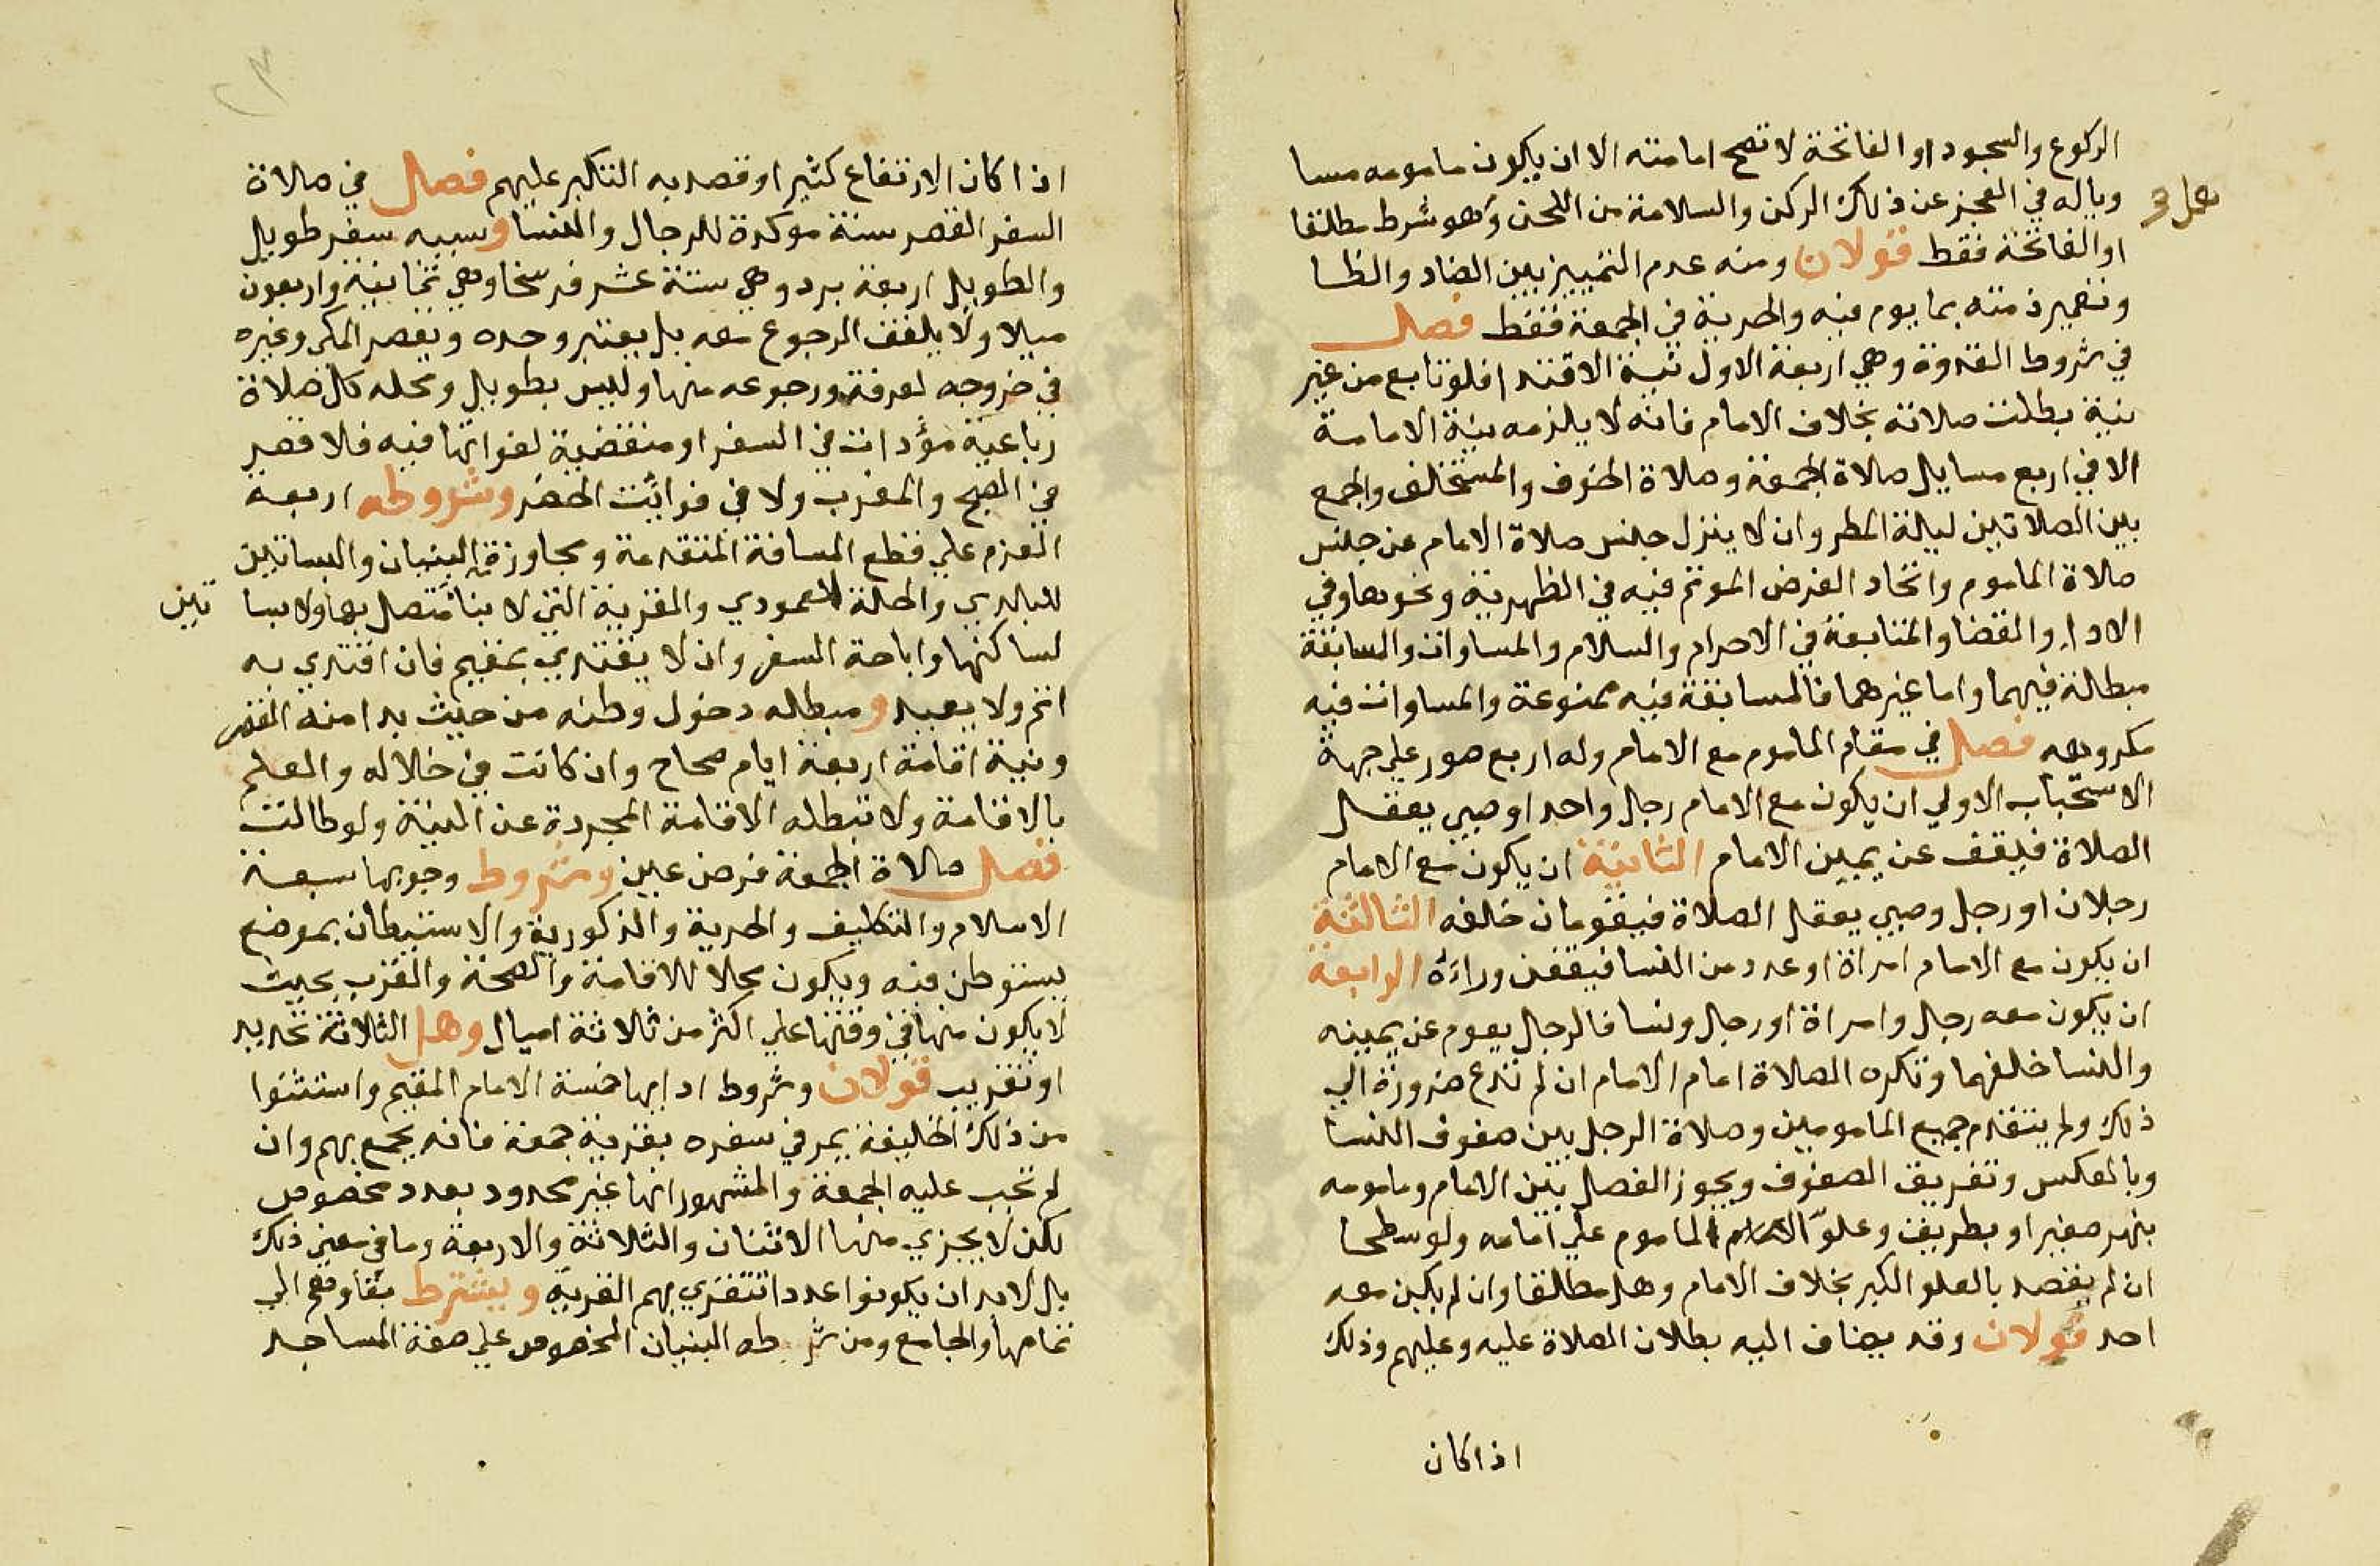 الركوع والسجود او الفاتحة لا تصح امامته الا ان يكون مامومه مسا
ويا له في العجز عن ذلك الركن والسلامة من اللحن وهو شرط مطلقا
او الفاتحة فقط قولان ومنه عدم التمييز بين الضاد والظا
وتعمير ذمته بما يوم فيه والحرية في الجمعة فقط فصل
في شروط القدوة وهي اربعة الاول نية الاقتدا فلو تابع من غير
نية بطلت صلاته بخلاف الامام فانه لا يلزمه نية الامامة
الا في اربع مسايل صلاة الجمعة وصلاة الخوف والمستخلف والجمع
بين الصلاتين ليلة المطر وان لا ينزل جنس صلاة الامام عن جنس
صلاة الماموم واتحاد الفرض الموتم فيه في الظهرية ونحوها وفي
الاداء والقضا والمتابعة في الاحرام والسلام والمساوات والمسابقة
مبطلة فيهما واما غيرهما فالمسابقة فيه ممنوعة والمساوات فيه
مكروهه فصل في مقام الماموم مع الامام وله اربع صور على جهة
الاستحباب الاولي ان يكون مع الامام رجل واحد او صبي يعقل
الصلاة فيقف عن يمين الامام الثانية ان يكون مع الامام
رجلان او رجل وصبي يعقل الصلاة فيقومان خلفه الثالثة
ان يكون مع الامام امراة او عدد من النسا فيقفن وراءه الرابعة
ان يكون معه رجل وامراة او رجل ونسا فالرجل يقوم عن يمينه
والنسا خلفهما وتكره الصلاة امام الامام ان لم تدع ضرورة الي
ذلك ولم يتقدم جميع المامومين وصلاة الرجل بين صفوف النسا
وبالعكس وتفريق الصفوف ويجوز الفصل بين الامام ومامومه
بنهر صغير او بطريق وعلو الماموم علي امامه ولو سطحا
ان لم يقصد بالعلو الكبر بخلاف الامام وهل مطلقا وان لم يكن معه
احد قولان وقد يضاف اليه بطلان الصلاة عليه وعليهم وذلك
اذا كان
اذا كان الارتفاع كثيرا وقصد به التكبر عليهم فصل في صلاة
السفر القصر سنة موكدة للرجال والنسا وسببه سفر طويل
والطويل اربعة برد وهي ستة عشر فرسخا وهي ثمانية واربعون
ميلا ولا يلفق الرجوع معه بل يعتبر وحده ويقصر المكي وغيره
في خروجه لعرفة ورجوعه منها وليس بطويل ومحله كل صلاة
رباعية مؤدات في السفر او منقضية لفواتها فيه فلا قصر
في الصبح والمغرب ولا في فوايت الحضر وشروطه اربعة
العزم علي قطع المسافة المتقدمة ومجاوزة البنيان والبساتين
للبلدي والحلة للعمودي والقرية التي لا بنا متصل بها ولا بسا تين
لساكنها واباحة السفر وان لا يقتدي بمقيم فان اقتدي به
اتم ولا يعيد ومبطله دخول وطنه من حيث بدا منه القصر
ونية اقامة اربعة ايام صحاح وان كانت في خلاله والعلم
بالاقامة ولا تبطله الاقامة المجردة عن النية ولو طالت
فصل صلاة الجمعة فرض عين وشروط وجوبها سبعة
الاسلام والتكليف والحرية والذكورية والاستيطان بموضع
يستوطن فيه ويكون محلا للاقامة والصحة والقرب بحيث
لا يكون منها في وقتها علي اكثر من ثلاثة اميال وهل الثلاثة تحديد
او تقريب قولان وشروط ادايها خمسة الامام المقيم واستثنوا
من ذلك الخليفة يمر في سفره بقرية جمعة فانه يجمع بهم وان
لم تجب عليه الجمعة والمشهور انها غير محدود بعدد مخصوص
لكن لا يجزي منها الاثنان والثلاثة والاربعة وما في معني ذلك
بل لابد ان يكونوا عددا تتقري بهم القرية ويشترط بقاوهم الي
تمامها والجامع ومن شرطه البنيان المخصوص علي صفة المساجد